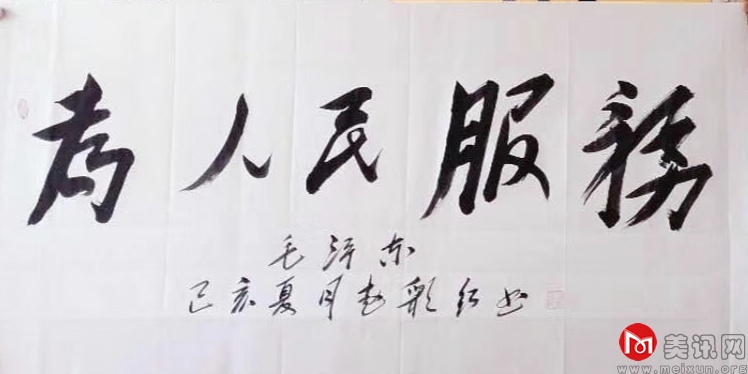 為人民服務
毛泽东
己亥夏月赵彩红书
美讯网
www.meixun.org